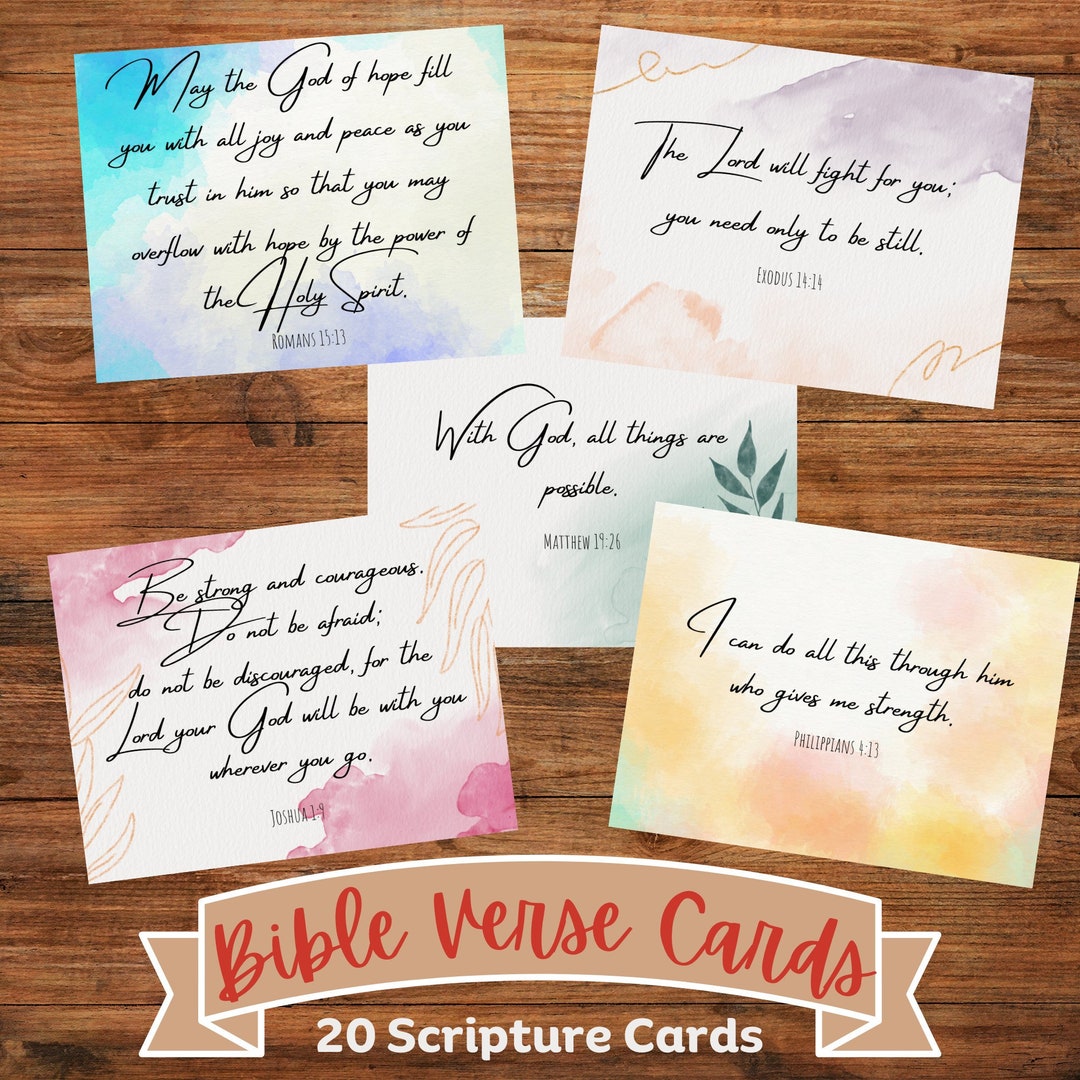 May the God of hope fill
you with all joy and peace as you
trust in him so that you may
overflow with hope by the power of
the Holy Spirit.
Romans 15:13
The Lord will fight for you;
you need only to be still.
Exodus 14:14
With God, all things are
possible.
Matthew 19:26
Be strong and courageous.
Do not be afraid;
do not be discouraged, for the
Lord your God will be with you
wherever you go.
Joshua 1:9
I can do all this through him
who gives me strength.
Philippians 4:13
Bible Verse Cards
20 Scripture Cards